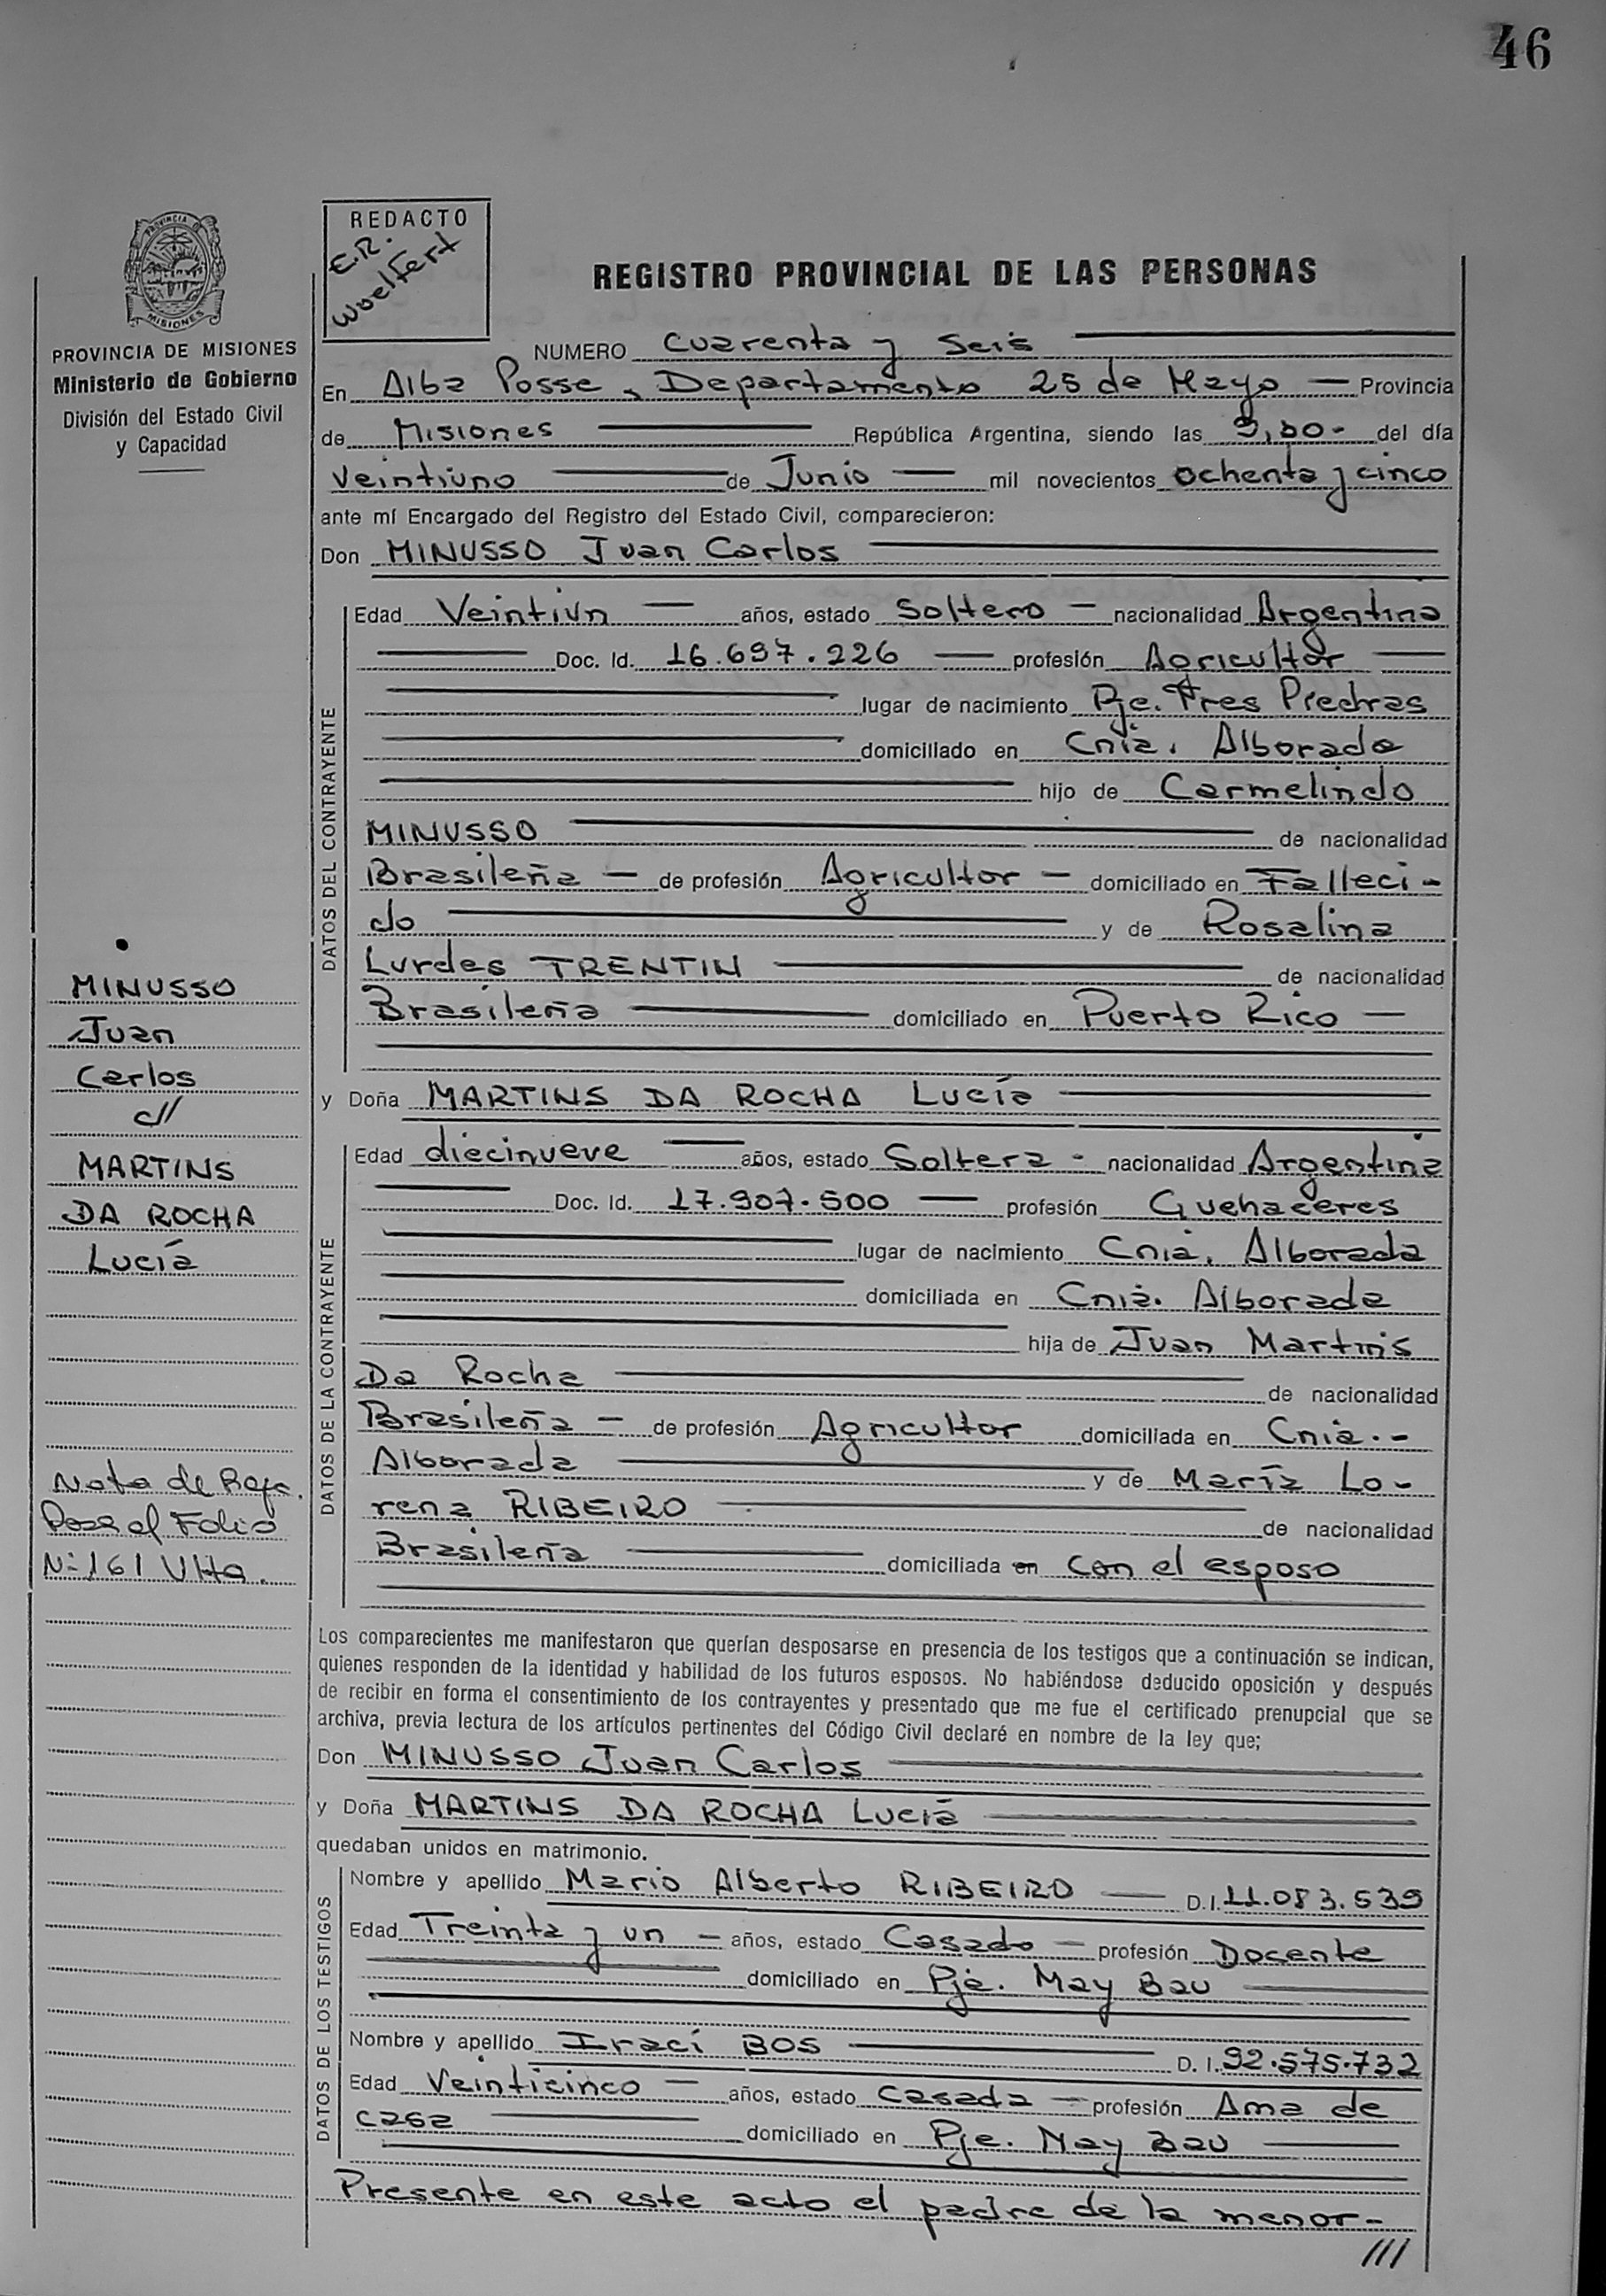 46
REDACTO
E.R.
Woelfert
PROVINCIA DE MISIONES
MISIONES
REGISTRO PROVINCIAL DE LAS PERSONAS
PROVINCIA DE MISIONES
Ministerio de Gobierno
División del Estado Civil
y Capacidad
NUMERO Cuarenta y Seis
En Alba Posse, Departamento 25 de Mayo — Provincia
de Misiones — República Argentina, siendo las 9,00- del día
Veintiuno — de Junio — mil novecientos ochenta y cinco
ante mí Encargado del Registro del Estado Civil, comparecieron:
Don MINUSSO Juan Carlos
DATOS DEL CONTRAYENTE
Edad Veintiun — años, estado Soltero — nacionalidad Argentina
Doc. Id. 16.697.226 — profesión Agricultor
lugar de nacimiento Pje. Tres Piedras
domiciliado en Cnia. Alborada
hijo de Carmelindo
MINUSSO — de nacionalidad
Brasileña — de profesión Agricultor — domiciliado en Falleci-
do — y de Rosalina
Lurdes TRENTIN — de nacionalidad
Brasileña — domiciliado en Puerto Rico —
y Doña MARTINS DA ROCHA Lucía
DATOS DE LA CONTRAYENTE
Edad diecinueve — años, estado Soltera - nacionalidad Argentina
Doc. Id. 17.907.500 — profesión Quehaceres
lugar de nacimiento Cnia. Alborada
domiciliada en Cnia. Alborada
hija de Juan Martins
Da Rocha — de nacionalidad
Brasileña — de profesión Agricultor domiciliada en Cnia.-
Alborada — y de María Lo-
rena RIBEIRO — de nacionalidad
Brasileña — domiciliada en con el esposo
MINUSSO
Juan
Carlos
c//
MARTINS
DA ROCHA
Lucía
Nota de Ref.
Pasa al Folio
Nº 161 Vlta.
Los comparecientes me manifestaron que querían desposarse en presencia de los testigos que a continuación se indican,
quienes responden de la identidad y habilidad de los futuros esposos. No habiéndose deducido oposición y después
de recibir en forma el consentimiento de los contrayentes y presentado que me fue el certificado prenupcial que se
archiva, previa lectura de los artículos pertinentes del Código Civil declaré en nombre de la ley que;
Don MINUSSO Juan Carlos
y Doña MARTINS DA ROCHA Lucía
quedaban unidos en matrimonio.
DATOS DE LOS TESTIGOS
Nombre y apellido Mario Alberto RIBEIRO — D.I. 11.083.539
Edad Treinta y un — años, estado Casado — profesión Docente
domiciliado en Pje. May Bau
Nombre y apellido Iraci BOS — D. I. 92.575.732
Edad Veinticinco — años, estado Casada — profesión Ama de
casa — domiciliado en Pje. May Bau
Presente en este acto el padre de la menor-
///